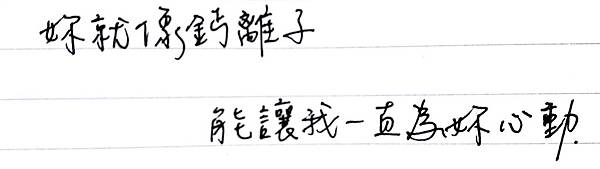 妳就像鈣離子
能讓我一直為妳心動